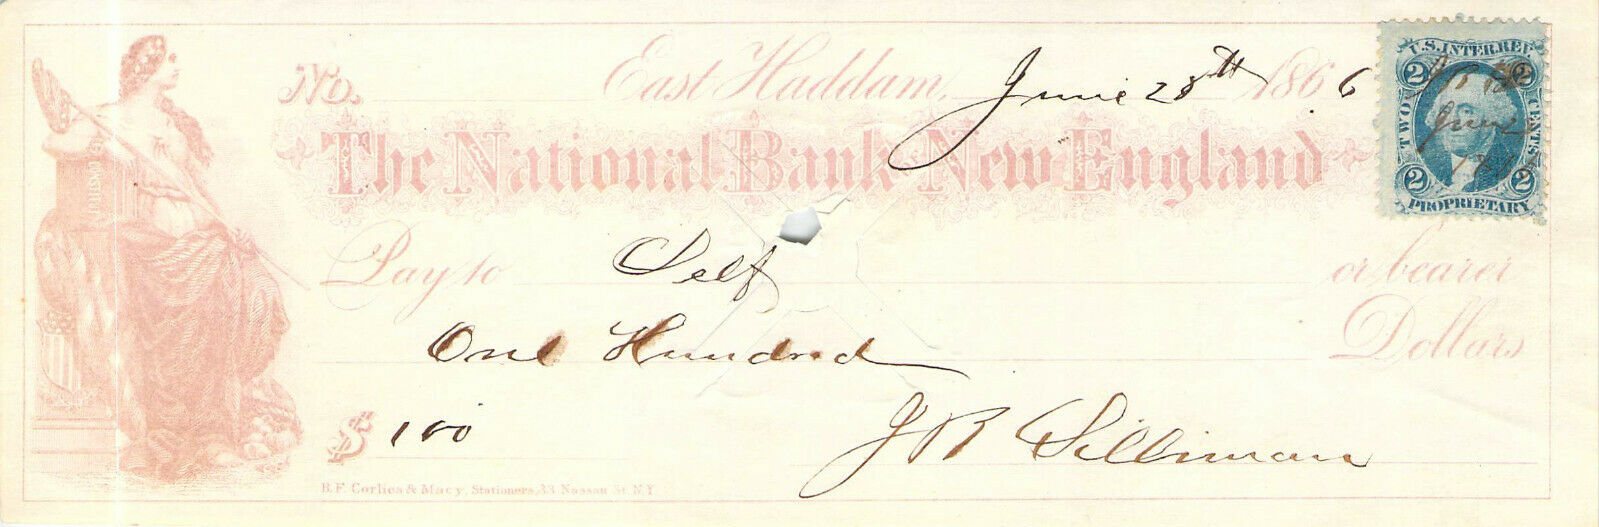 No. East Haddam, June 28th 1866
The National Bank of New England
Pay to Self or bearer
One Hundred Dollars
$ 100 J R Silliman
B.F. Corlies & Macy, Stationers, 33 Nassau St. N.Y.
U.S. INTER. REV.
2 2
TWO CENTS
June
1866
2 2
PROPRIETARY
CONSTITU